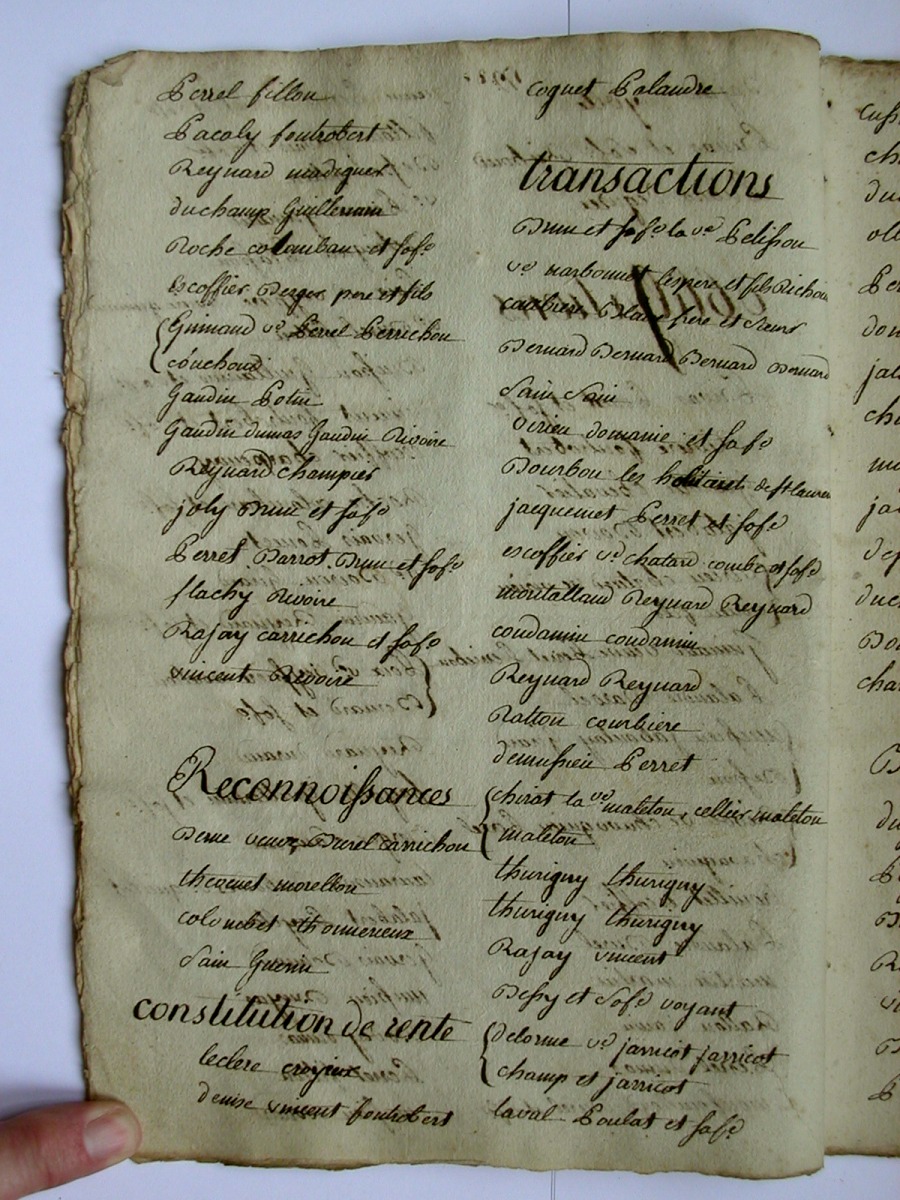 Perrel fillon
Pacaly foutrobert
Reynard madignier
duchamp Guillermin
Roche colomban et sa fe
escoffier Berger pere et fils
Grimaud ve Perrel Perrichon
couchoud
Gaudin Potin
Gaudin dumas Gaudin Rivoire
Reynard champier
joly Brun et sa fe
Perret Barrot Brun et sa fe
flachy Rivoire
Rajay carrichon et sa fe
vincent Rivoire
Reconnoissances
veuve Burel carrichon
morellon
colombet thonnerieux
Sain Guerin
constitution de rente
leclerc croizier
denise vincent foutrobert
coquet Palandre
transactions
Brun et sa fe la ve Pelisson
ve narbonnet pere et fils Richou
frere et sœur
Bernard Bernard Bernard Bernard
Sain Sain
Virieu domanie et sa fe
Bourbon les habitants de st laurent
jacquemet Perret et sa fe
escoffier ve chatard combe et sa fe
montalland Reynard Reynard
coudamin coudamin
Reynard Reynard
Ratton courbiere
Perret
chirat la ve maleton, cellier maleton
maleton
thurigny thurigny
thurigny thurigny
Rajay vincent
Bessy et sa fe voyant
delorme ve jarricot jarricot
champ et jarricot
laval Poulat et sa fe